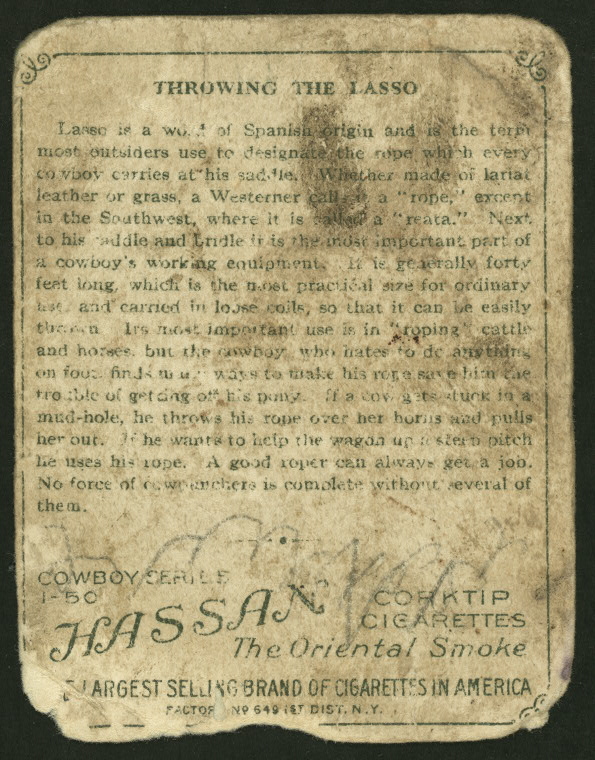 THROWING THE LASSO
Lasso is a word of Spanish origin and is the term
most outsiders use to designate the rope which every
cowboy carries at his saddle. Whether made of lariat
leather or grass, a Westerner calls it a "rope," except
in the Southwest, where it is called a "reata." Next
to his saddle and bridle it is the most important part of
a cowboy's working equipment. It is generally forty
feet long, which is the most practical size for ordinary
use and carried in loose coils, so that it can be easily
thrown. Its most important use is in "roping" cattle
and horses, but the cowboy, who hates to do anything
on foot, finds many ways to make his rope save him the
trouble of getting off his pony. If a cow gets stuck in a
mud-hole, he throws his rope over her horns and pulls
her out. If he wants to help the wagon up a steep pitch
he uses his rope. A good roper can always get a job.
No force of cowpunchers is complete without several of
them.
COWBOY SERIES
1-50
HASSAN CORK TIP
CIGARETTES
The Oriental Smoke
LARGEST SELLING BRAND OF CIGARETTES IN AMERICA
FACTORY Nº 649 1ST DIST. N.Y.